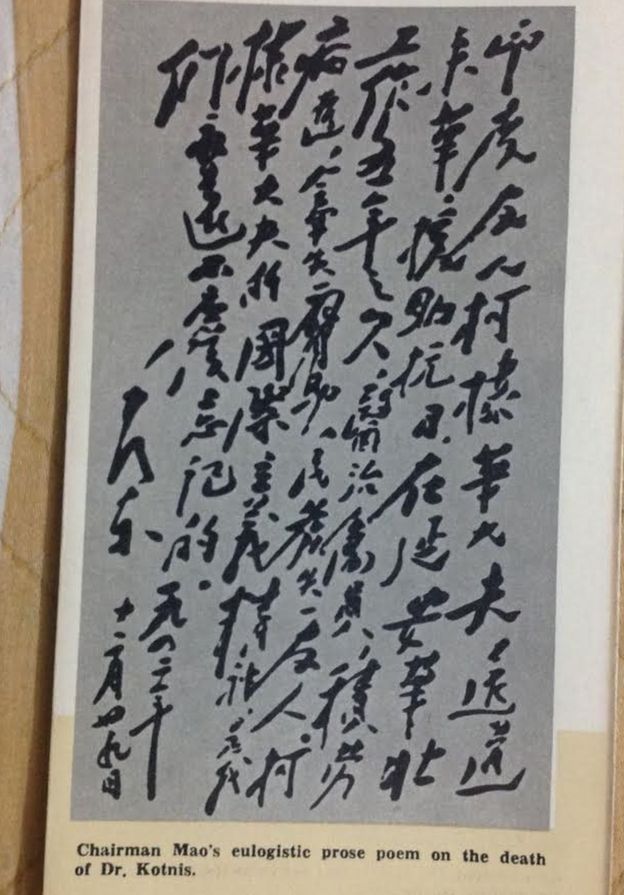 印度友人柯棣華大夫、遠道
来華、援助抗日、在延安華北
工作五年之久、醫治傷員、積勞
病逝、全軍失一臂助、民族失一友人。柯
棣華大夫的國際主義精神、是我
們永遠不應該忘記的。
毛澤東
一九四二年
十二月廿九日
Chairman Mao's eulogistic prose poem on the death
of Dr. Kotnis.